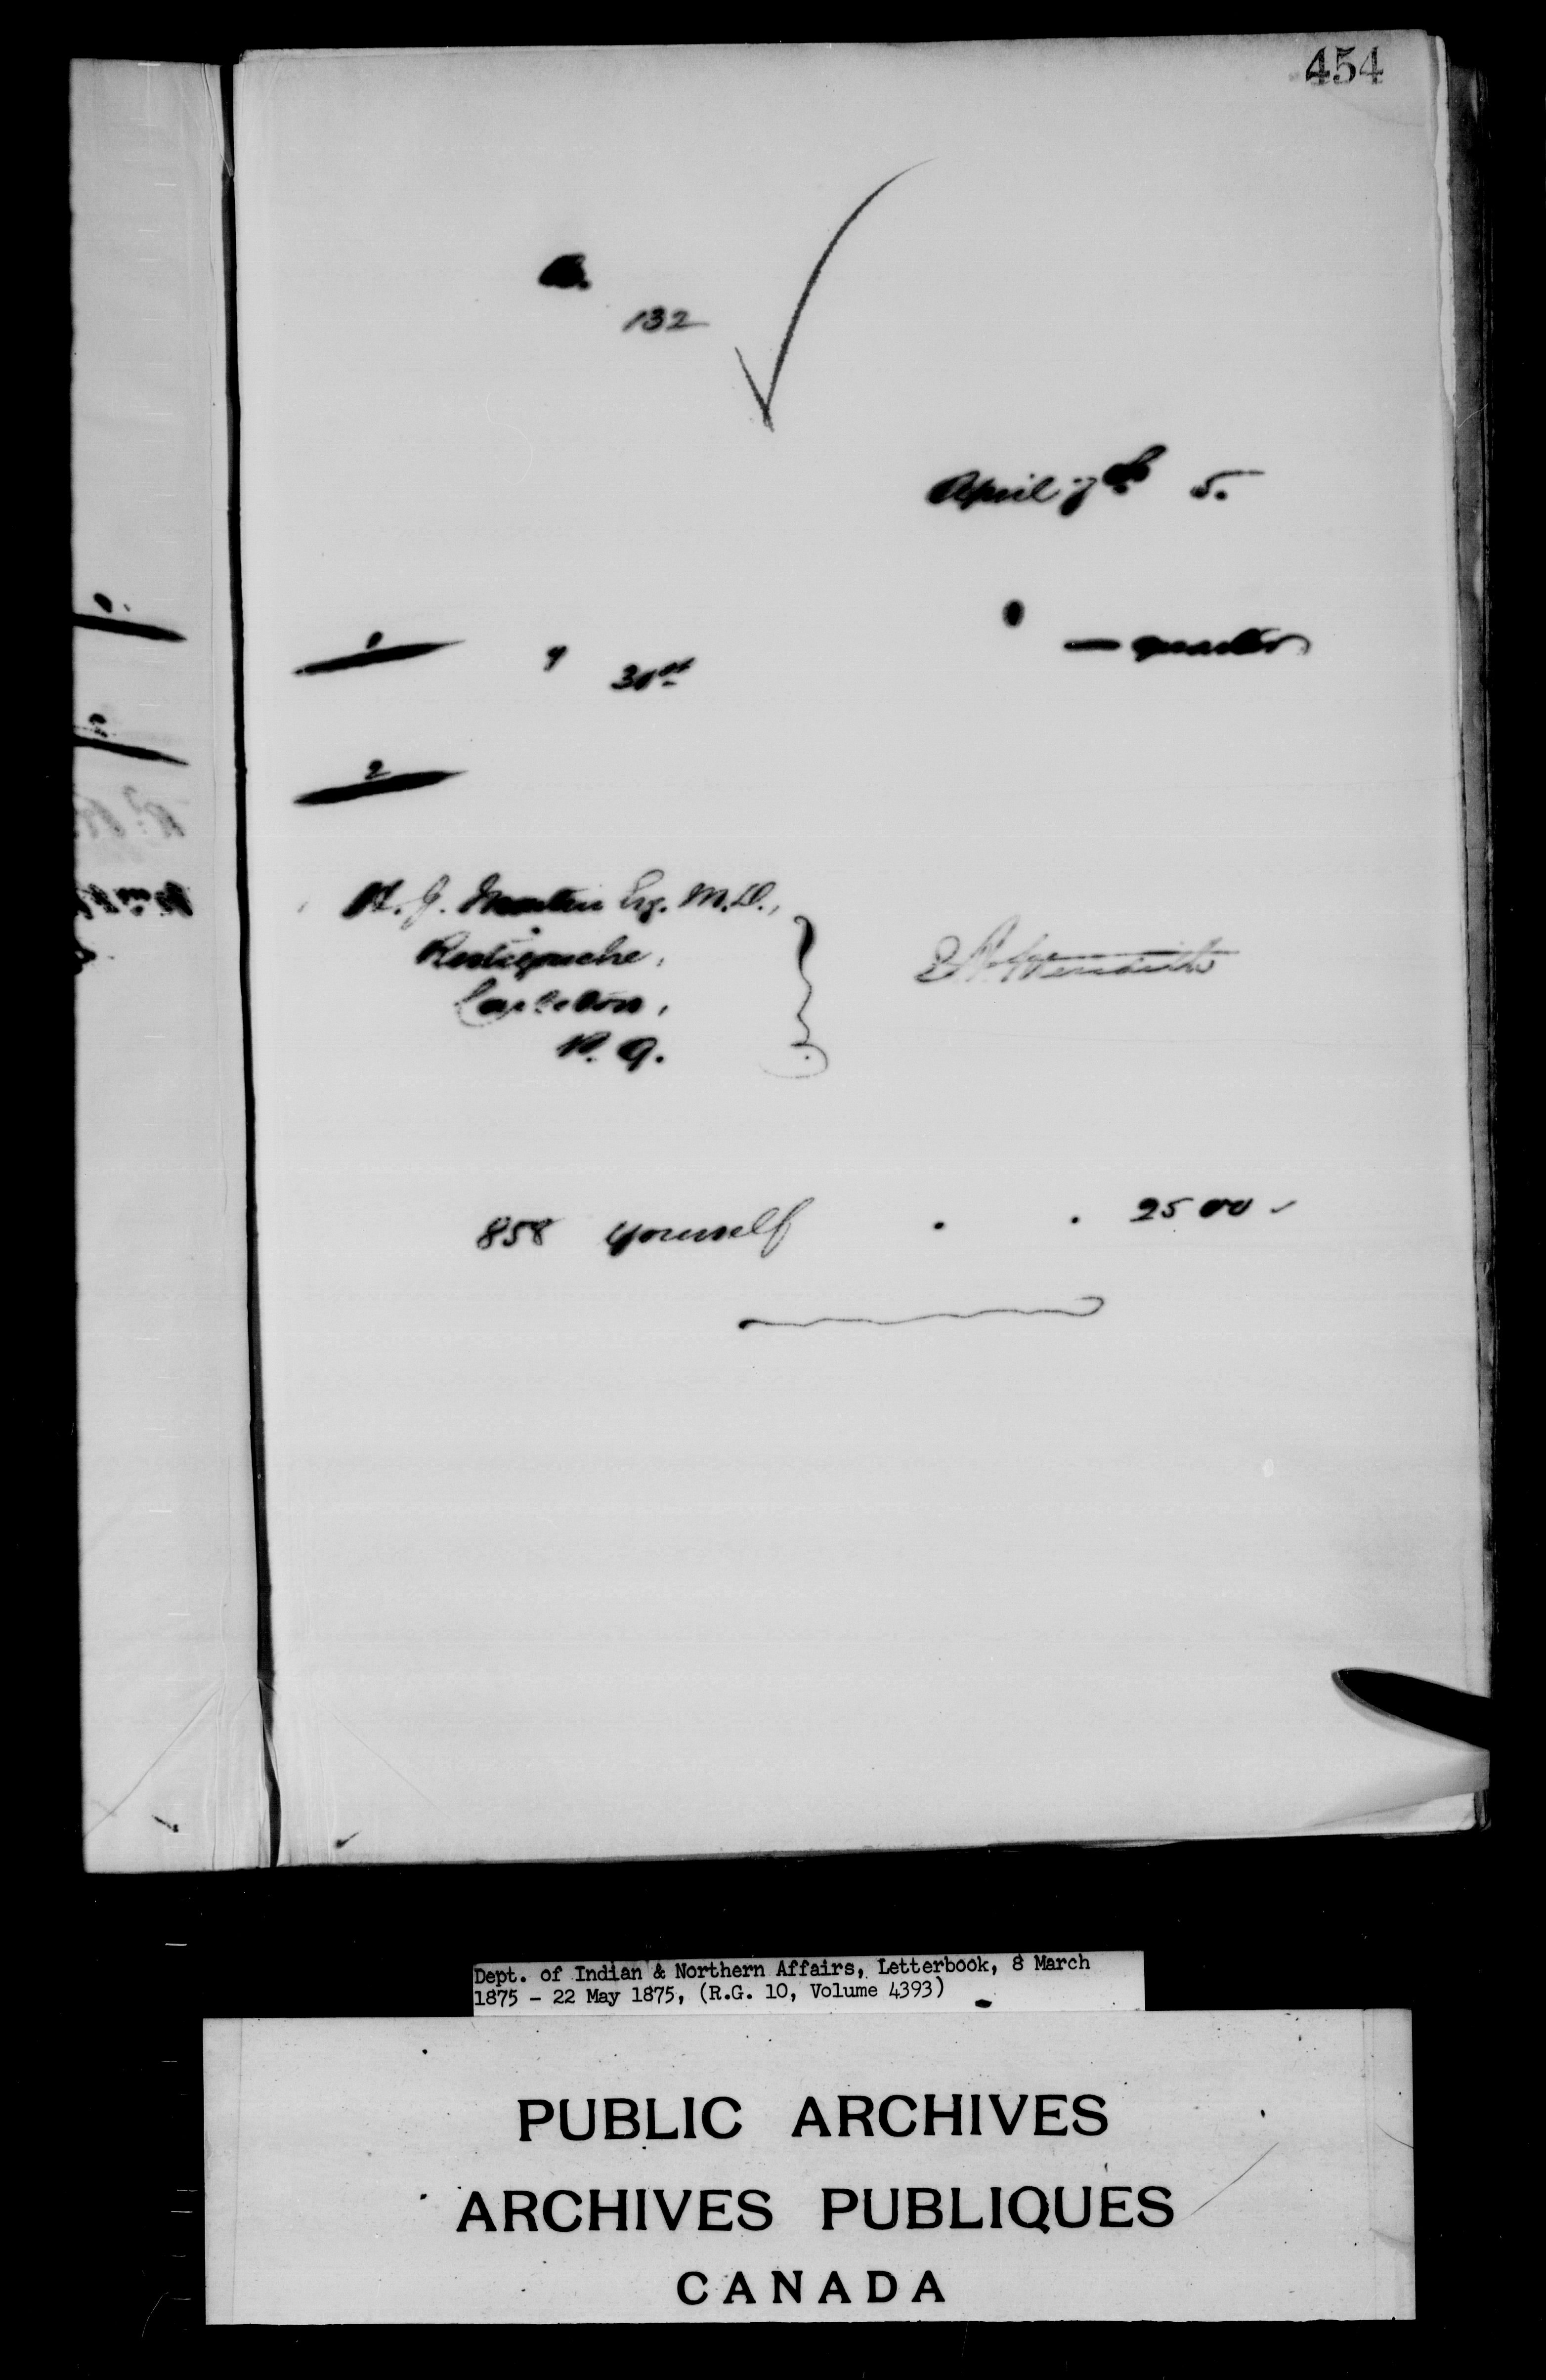 454
B.
132
April 7th 5.
1 9 31st — quarter
2
H. J. Martin Esq. M.D.,
Restigouche,
Carleton,
P. Q.
858 Yourself . . 25 00
Dept. of Indian & Northern Affairs, Letterbook, 8 March
1875 - 22 May 1875, (R.G. 10, Volume 4393)
PUBLIC ARCHIVES
ARCHIVES PUBLIQUES
CANADA